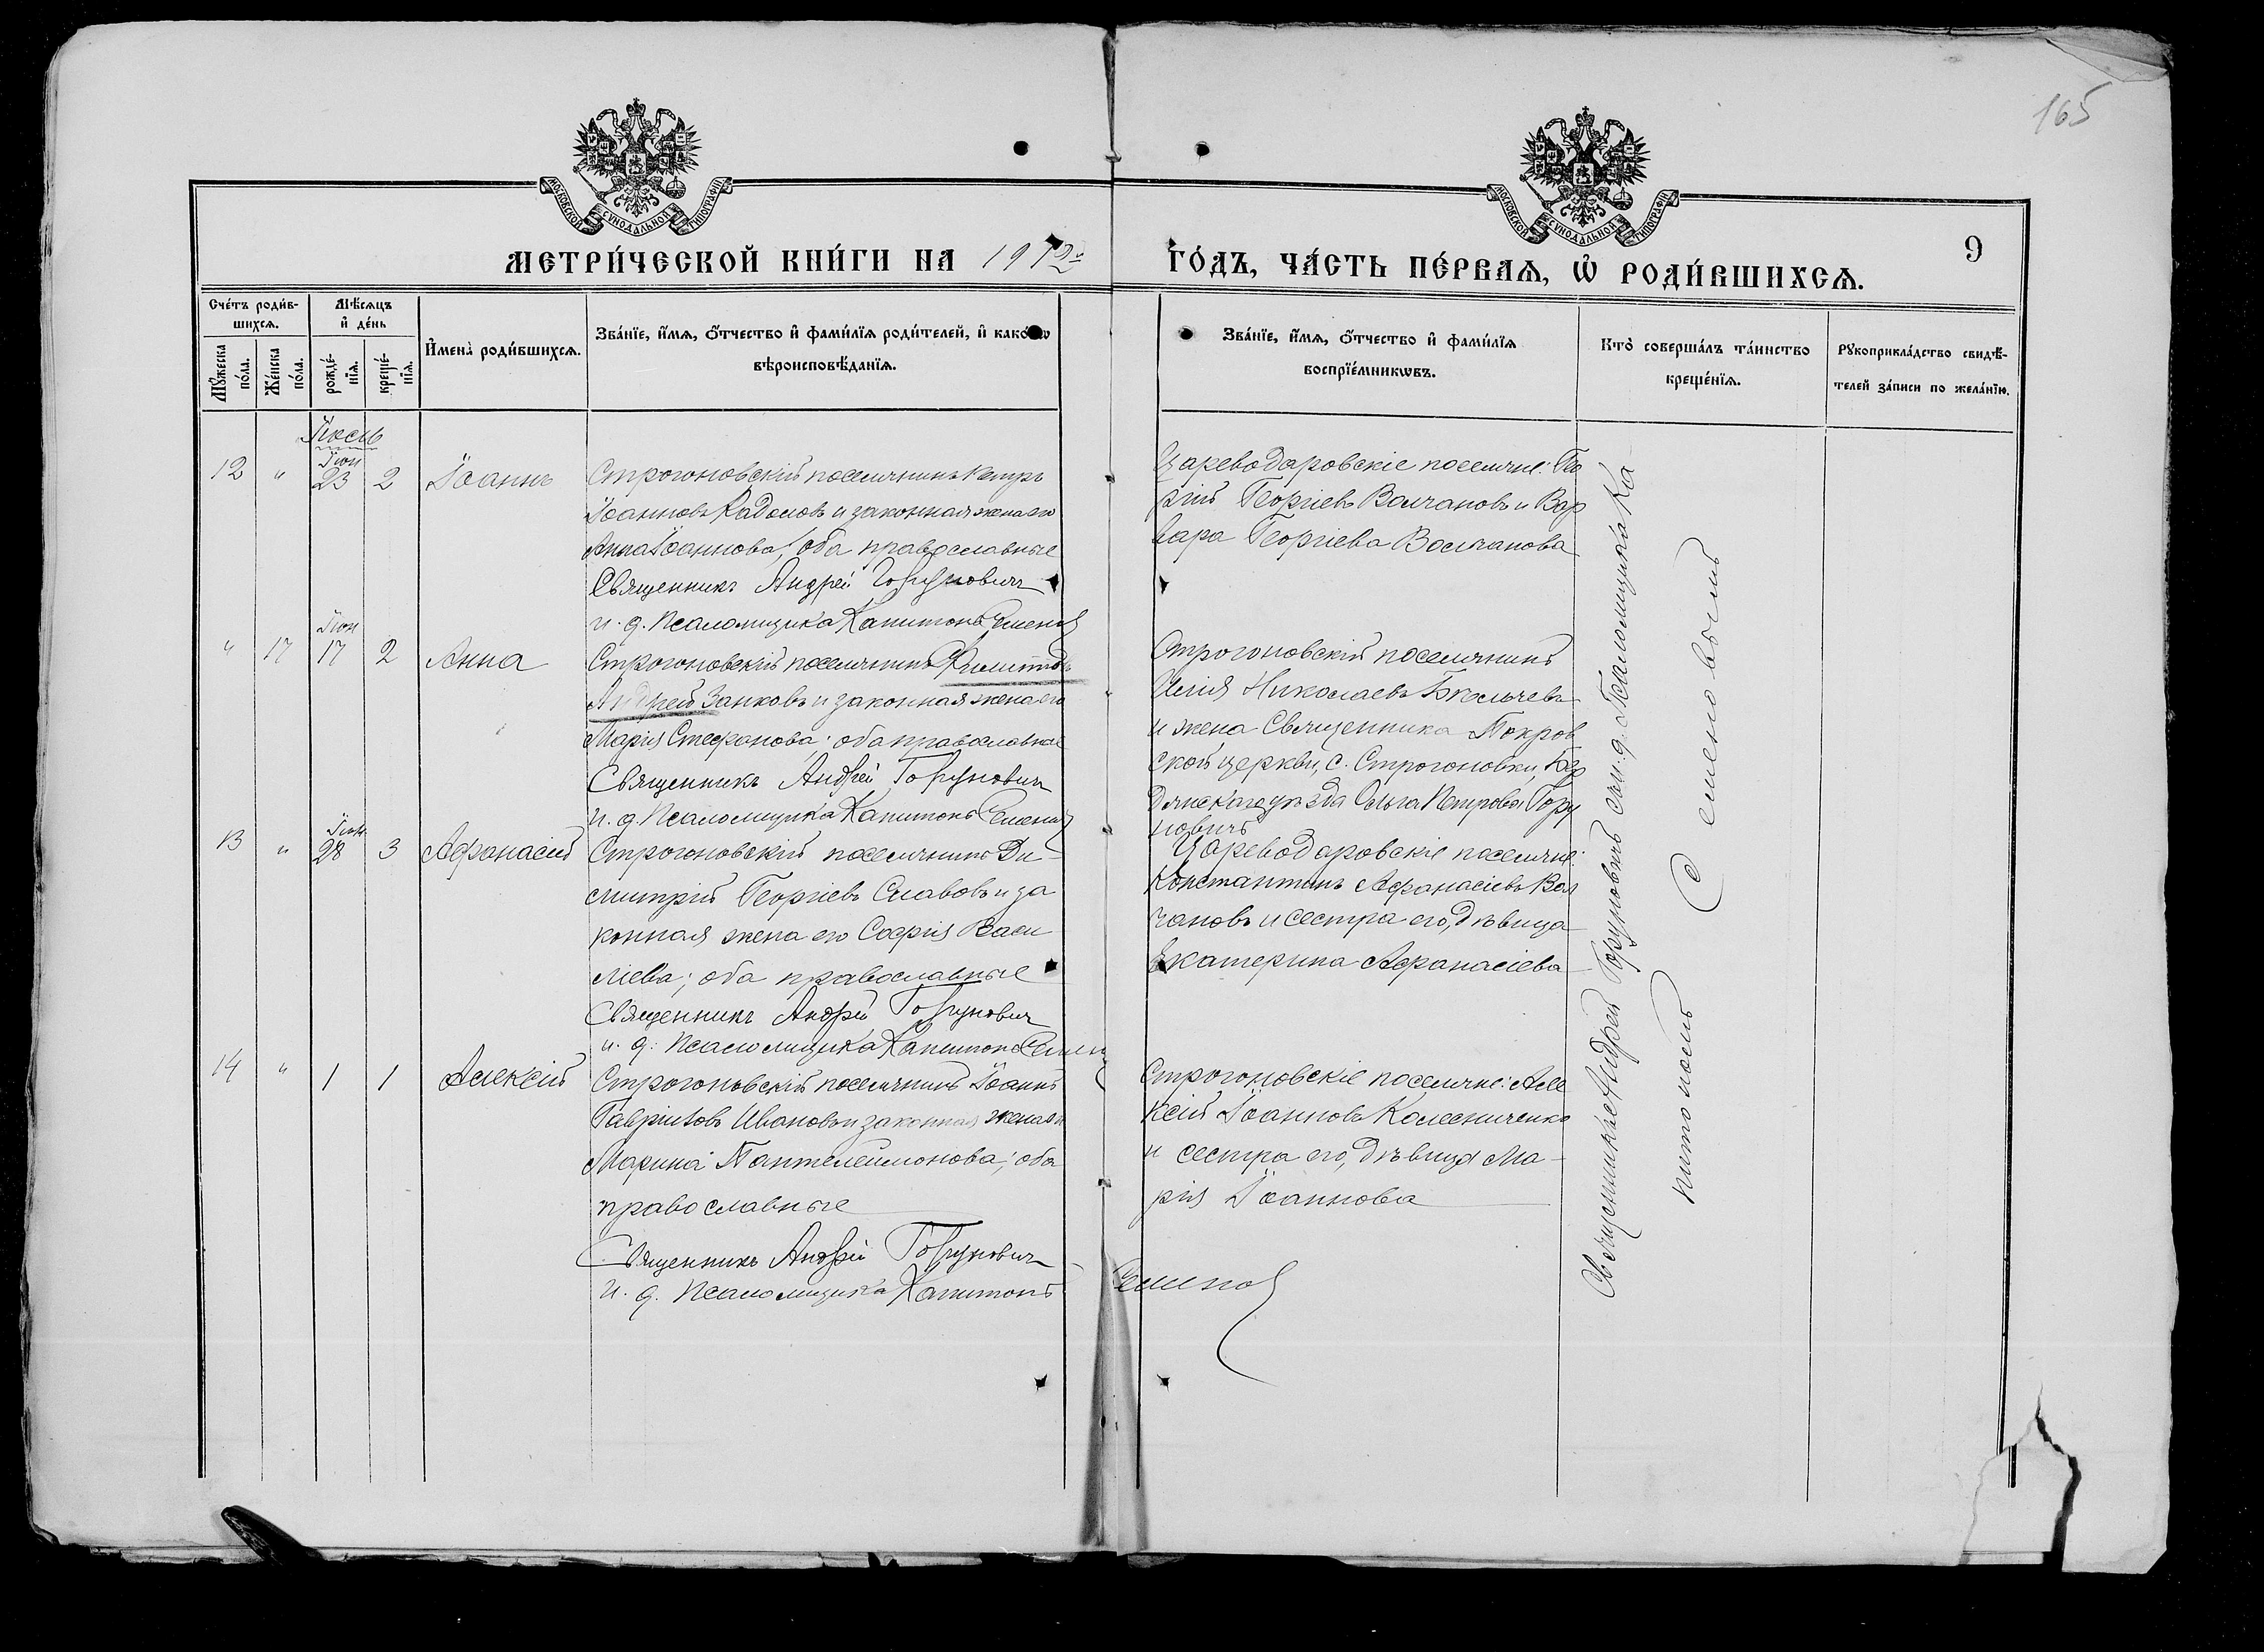 165
МОСКОВСКОЙ СѴНОДАЛЬНОЙ ТИПОГРАФІИ
МОСКОВСКОЙ СѴНОДАЛЬНОЙ ТИПОГРАФІИ
МЕТРИ́ЧЕСКОЙ КНИ́ГИ НА 1912
ГО́ДЪ, ЧА́СТЬ ПЕ́РВАѦ, Ѡ҆ РОДИ́ВШИХСѦ.
9
Сче́тъ роди́в-
шихсѧ.
Мѣ́сѧцъ
и҆ де́нь
Мꙋ́жеска
по́ла.
Же́нска
по́ла.
рожде́-
нїѧ.
креще́-
нїѧ.
И҆мена̀ роди́вшихсѧ.
Зва́нїе, и҆́мѧ, ѻ҆́тчество и҆ фами́лїѧ роди́телей, и҆ како́гѡ
вѣроисповѣ́данїѧ.
Зва́нїе, и҆́мѧ, ѻ҆́тчество и҆ фами́лїѧ
воспрїе́мникѡвъ.
Кто̀ соверша́лъ та́инство
креще́нїѧ.
Рꙋкоприкла́дство свидѣ́-
телей за́писи по жела́нїю.
Іюль
Іюн
12 " 23 2 Іоаннъ
Строгоновскій поселянинъ Петръ
Іоанновъ Кадоловъ и законная жена его
Анна Іоаннова, оба православные
Священникъ Андрей Горуновичъ
и. д. Псаломщика Капитонъ Семенов
Цареводаровскіе поселяне: Гео
ргій Георгіевъ Волчановъ и Вар
вара Георгіева Волчанова
Іюн
" 17 17 2 Анна
Строгоновскій поселянинъ
Андрей Занковъ и законная жена его
Марія Стефанова; оба православные
Священникъ Андрей Горуновичъ
и. д. Псаломщика Капитонъ Семенов
Строгоновскій поселянинъ
Илія Николаевъ
и жена Священника Покров
ской церкви, с. Строгоновки, Бер
дянскаго уѣзда Ольга Петрова Гору
новичъ
Іюн
13 " 28 3 Афанасій
Строгоновскій поселянинъ Ди-
митрій Георгіевъ Славовъ и за
конная жена его Софія Васи
ліева; оба православные
Священникъ Андрей Горуновичъ
и. д. Псаломщика Капитонъ Семен
Цареводаровскіе поселяне:
Константинъ Афанасіевъ Вол
чановъ и сестра его, дѣвица
Екатерина Афанасіева
14 " 1 1 Алексій
Строгоновскій поселянинъ Іоаннъ
Гавріиловъ Ивановъ и законная жена его
Марина Пантелеимонова; оба
православные
Священникъ Андрей Горуновичъ
и. д. Псаломщика Капитонъ Семенов
Строгоновскіе поселяне: Але
ксій Іоанновъ Колесниченко
и сестра его, дѣвица Ма-
рія Іоаннова
Священникъ Андрей Горуновичъ съ и. д. Псаломщика Ка
питономъ Семеновымъ